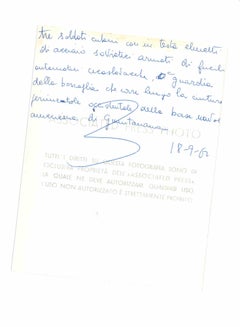 tre soldati cubani con in testa elmetti
di acciaio sovietici armati di fucili
automatici cecoslovacchi, a guardia
della boscaglia che corre lungo la cintura
fortificata della base navale
americana di Guantanamo
18-9-62
ASSOCIATED PRESS PHOTO
TUTTI I DIRITTI SU QUESTA FOTOGRAFIA SONO DI
ESCLUSIVA PROPRIETÀ DELL'«ASSOCIATED PRESS»
LA QUALE NE DEVE AUTORIZZARE QUALSIASI USO.
L'USO NON AUTORIZZATO È STRETTAMENTE PROIBITO